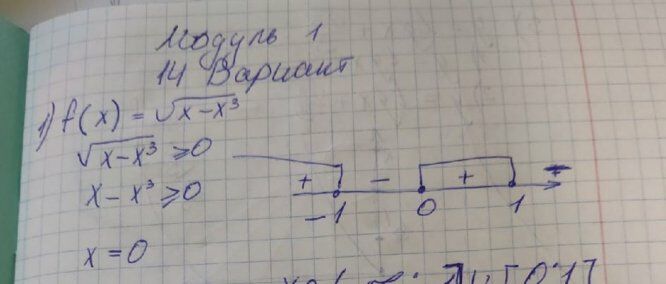 Модуль 1
14 Вариант
1) f(x) = √x-x³
√x-x³ ≥0
x - x³ ≥0
+ - +
-1 0 1
x = 0